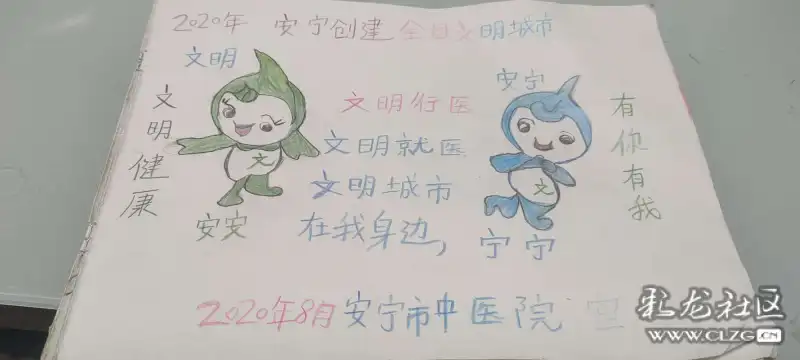 2020年 安宁创建全国文明城市
文明
安宁
文明健康
文明行医
文明就医
文明城市
在我身边,
有你有我
文
文
安安
宁宁
2020年8月安宁市中医院
彩龙社区
WWW.CLZG.CN